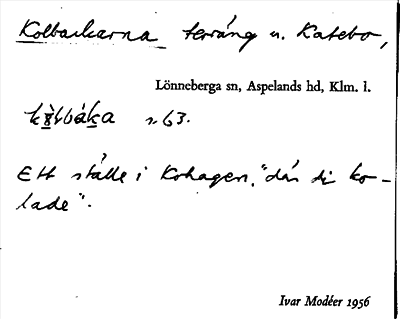 Kolbackarna terräng u. Katebo,
Lönneberga sn, Aspelands hd, Klm. l.
s. 63.
Ett ställe i Kohagen, "där di ko-
lade".
Ivar Modéer 1956